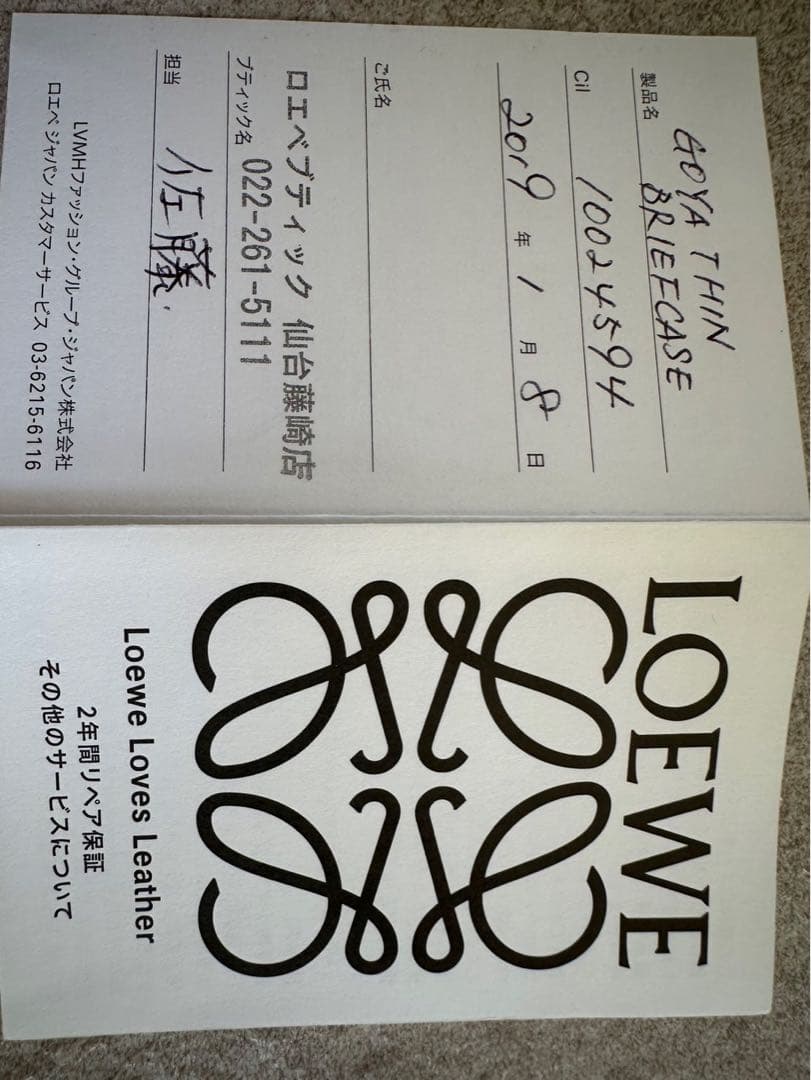 製品名 GOYA THIN
BRIEFCASE
Cil 10024594
2019 年 1 月 8 日
ご氏名
ロエベブティック 仙台藤崎店
ブティック名 022-261-5111
担当 佐藤.
LVMHファッション・グループ・ジャパン株式会社
ロエベ ジャパン カスタマーサービス 03-6215-6116
LOEWE
Loewe Loves Leather
2年間リペア保証
その他のサービスについて